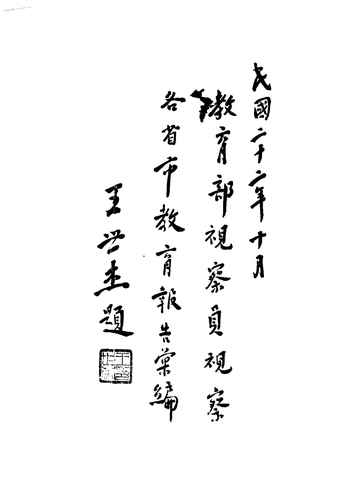 民國二十二年十月
教育部視察員視察
各省市教育報告彙編
王世杰題